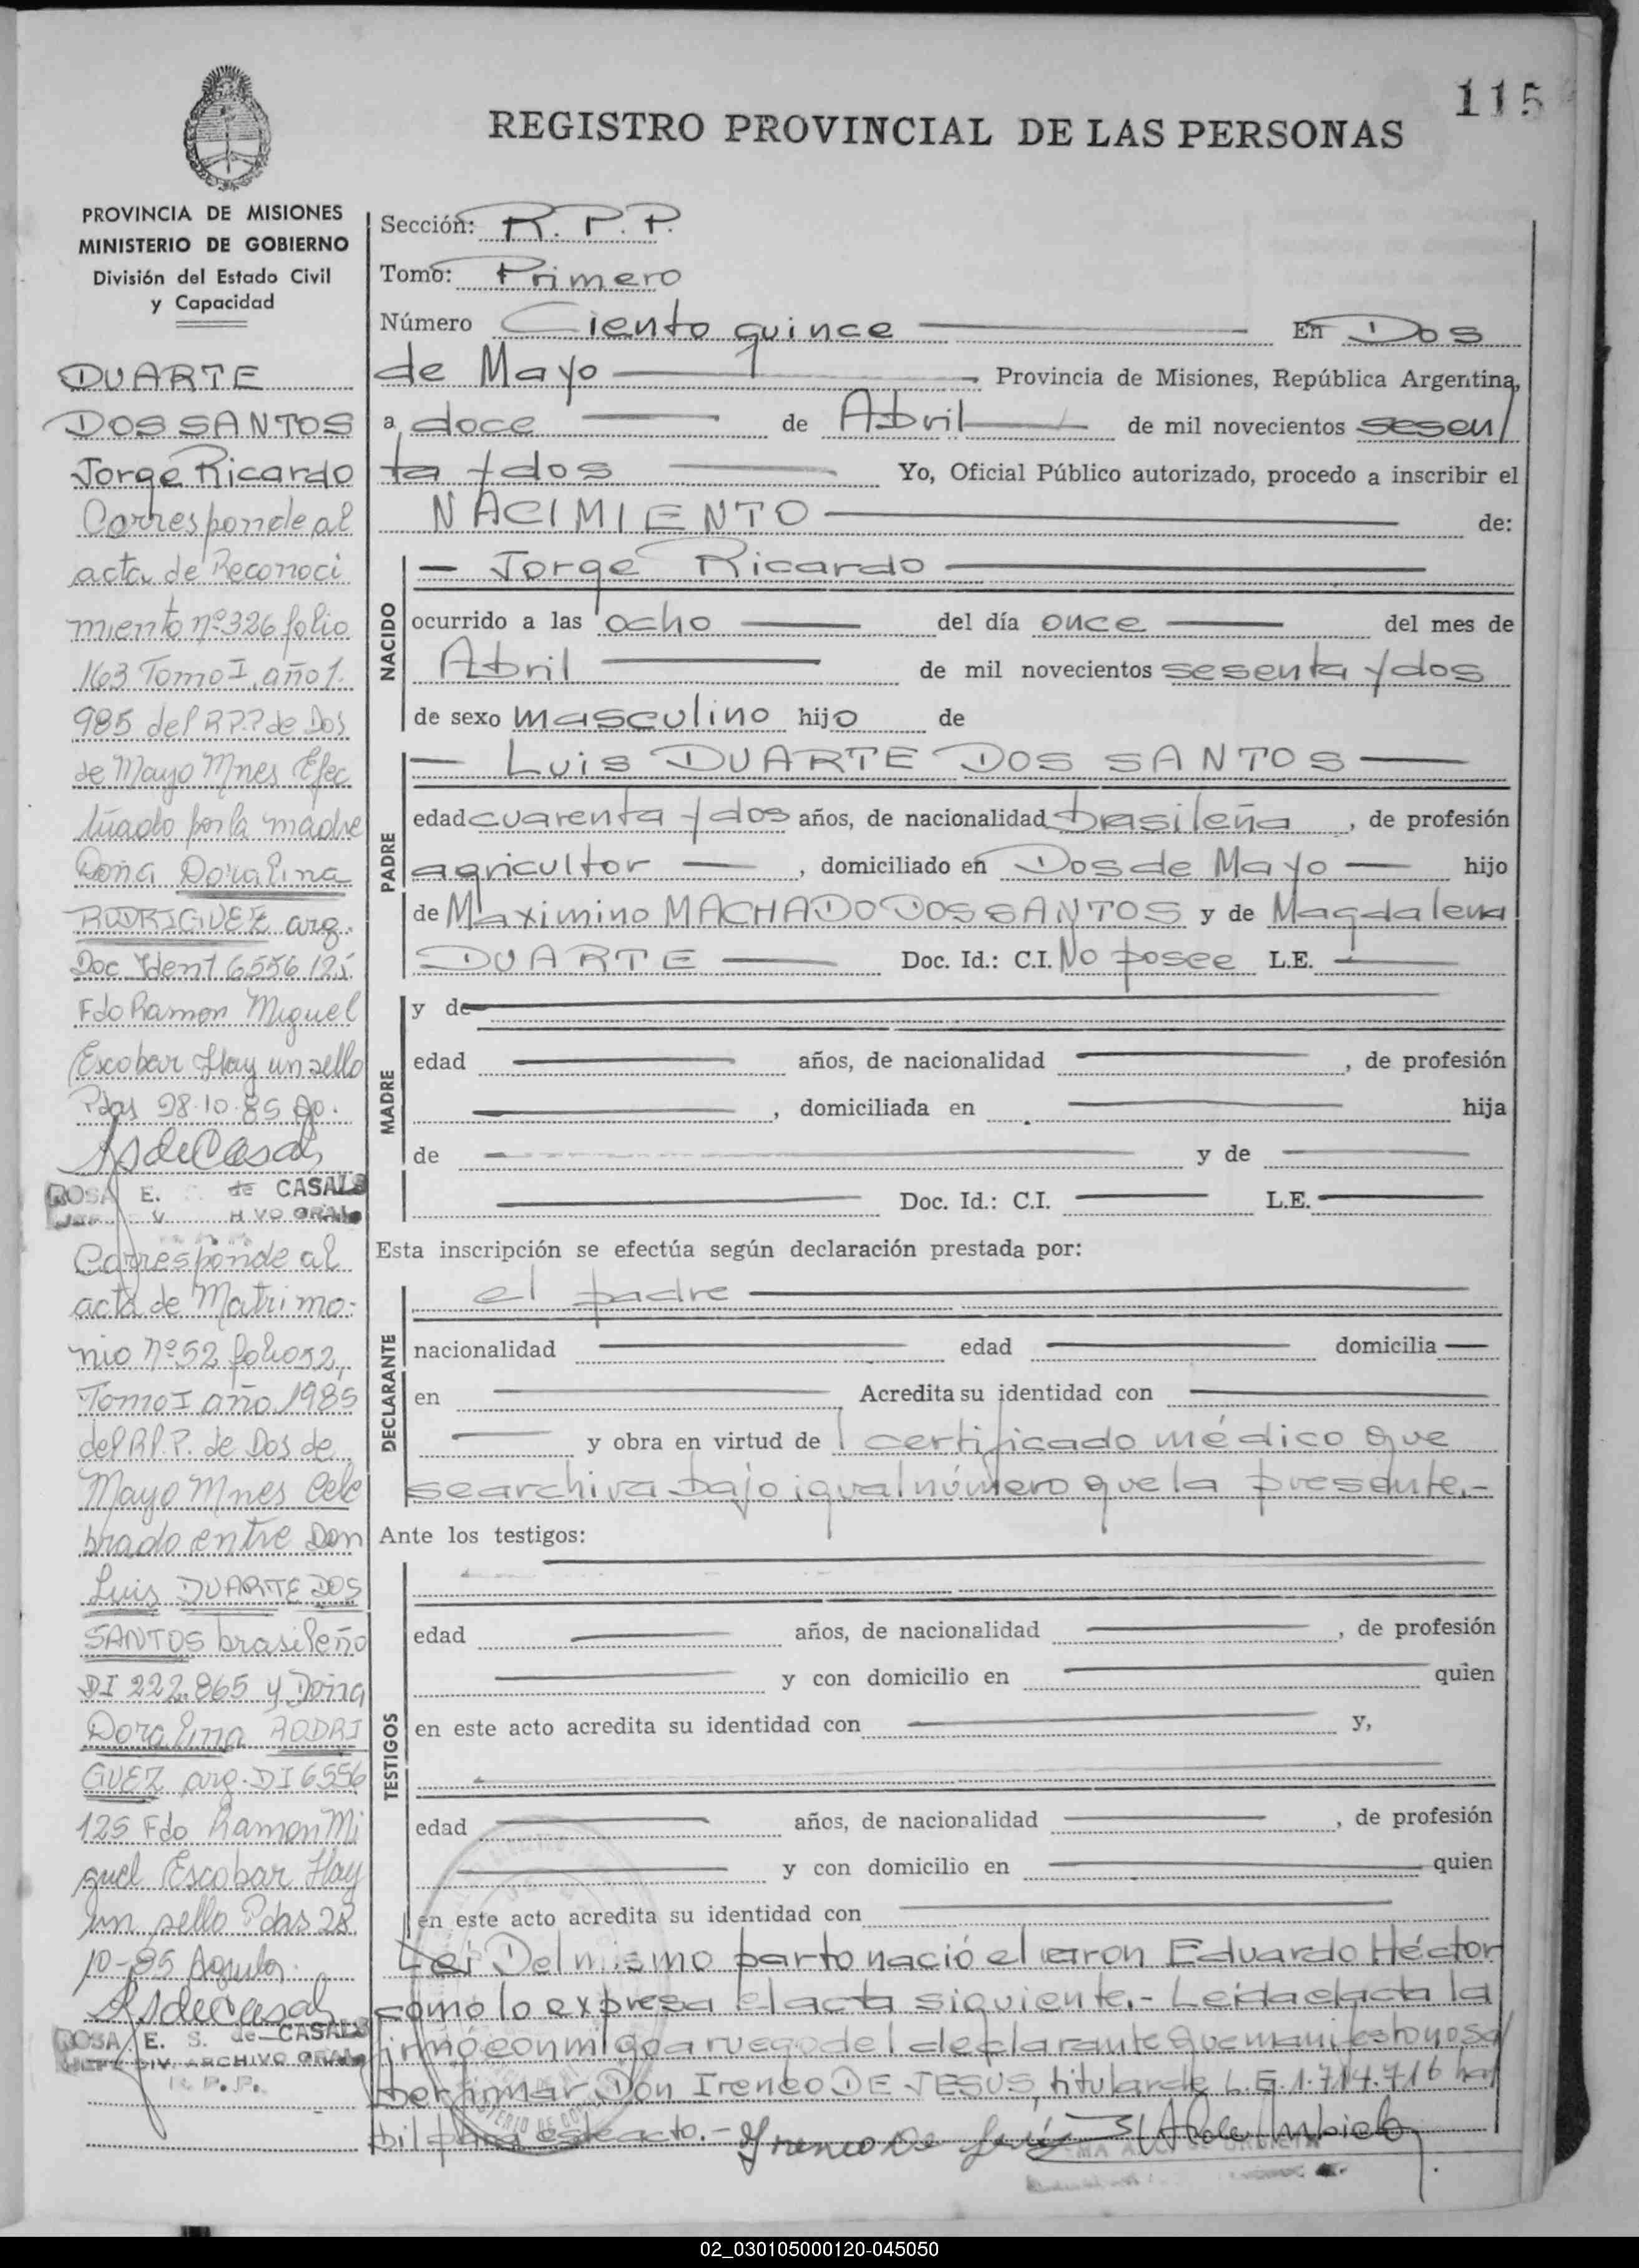 115
REGISTRO PROVINCIAL DE LAS PERSONAS
PROVINCIA DE MISIONES
MINISTERIO DE GOBIERNO
División del Estado Civil
y Capacidad
DUARTE
DOS SANTOS
Jorge Ricardo
Corresponde al
acta de Reconoci
miento nº 326 folio
163 Tomo I, año 1.
985 del R.P.P de Dos
de Mayo Mnes Efec
tuado por la madre
Doña Doralina
RODRIGUEZ arg.
Doc Ident 6556125.
Fdo Ramon Miguel
Escobar Hay un sello
Pdas 28.10.85
ROSA E. de CASALS
Corresponde al
acta de Matrimo-
nio nº 52 folio 52,
Tomo I año 1985
del R.P.P. de Dos de
Mayo Mnes Cele
brado entre Don
Luis DUARTE DOS
SANTOS brasileño
DI 222.865 y Doña
Doralina RODRI
GUEZ arg. DI 6556
125 Fdo Ramon Mi
guel Escobar Hay
un sello Pdas 28
10-85
ROSA E. S. de CASALS
DIV. ARCHIVO GRAL
R. P. P.
Sección: R. P. P.
Tomo: Primero
Número Ciento quince En Dos
de Mayo Provincia de Misiones, República Argentina,
a doce de Abril de mil novecientos sesen
ta y dos Yo, Oficial Público autorizado, procedo a inscribir el
NACIMIENTO de:
NACIDO
Jorge Ricardo
ocurrido a las ocho del día once del mes de
Abril de mil novecientos sesenta y dos
de sexo masculino hijo de
PADRE
Luis DUARTE DOS SANTOS
edad cuarenta y dos años, de nacionalidad brasileña, de profesión
agricultor, domiciliado en Dos de Mayo hijo
de Maximino MACHADO DOS SANTOS y de Magdalena
DUARTE Doc. Id.: C.I. No posee L.E.
MADRE
y de
edad años, de nacionalidad , de profesión
, domiciliada en hija
de y de
Doc. Id.: C.I. L.E.
Esta inscripción se efectúa según declaración prestada por:
DECLARANTE
el padre
nacionalidad edad domicilia
en Acredita su identidad con
y obra en virtud de l certificado médico que
se archiva bajo igual número que la presente.-
Ante los testigos:
TESTIGOS
edad años, de nacionalidad , de profesión
y con domicilio en quien
en este acto acredita su identidad con y,
edad años, de nacionalidad , de profesión
y con domicilio en quien
en este acto acredita su identidad con
Lei Del mismo parto nació el varon Eduardo Héctor
como lo expresa el acta siguiente.- Leida el acta la
firmó conmigo a ruego del declarante que manifestó no sa
ber firmar Don Ireneo DE JESUS, titular de L.E. 1.714.716 ha
bil para este acto.- Ireneo De Jesús
02_030105000120-045050